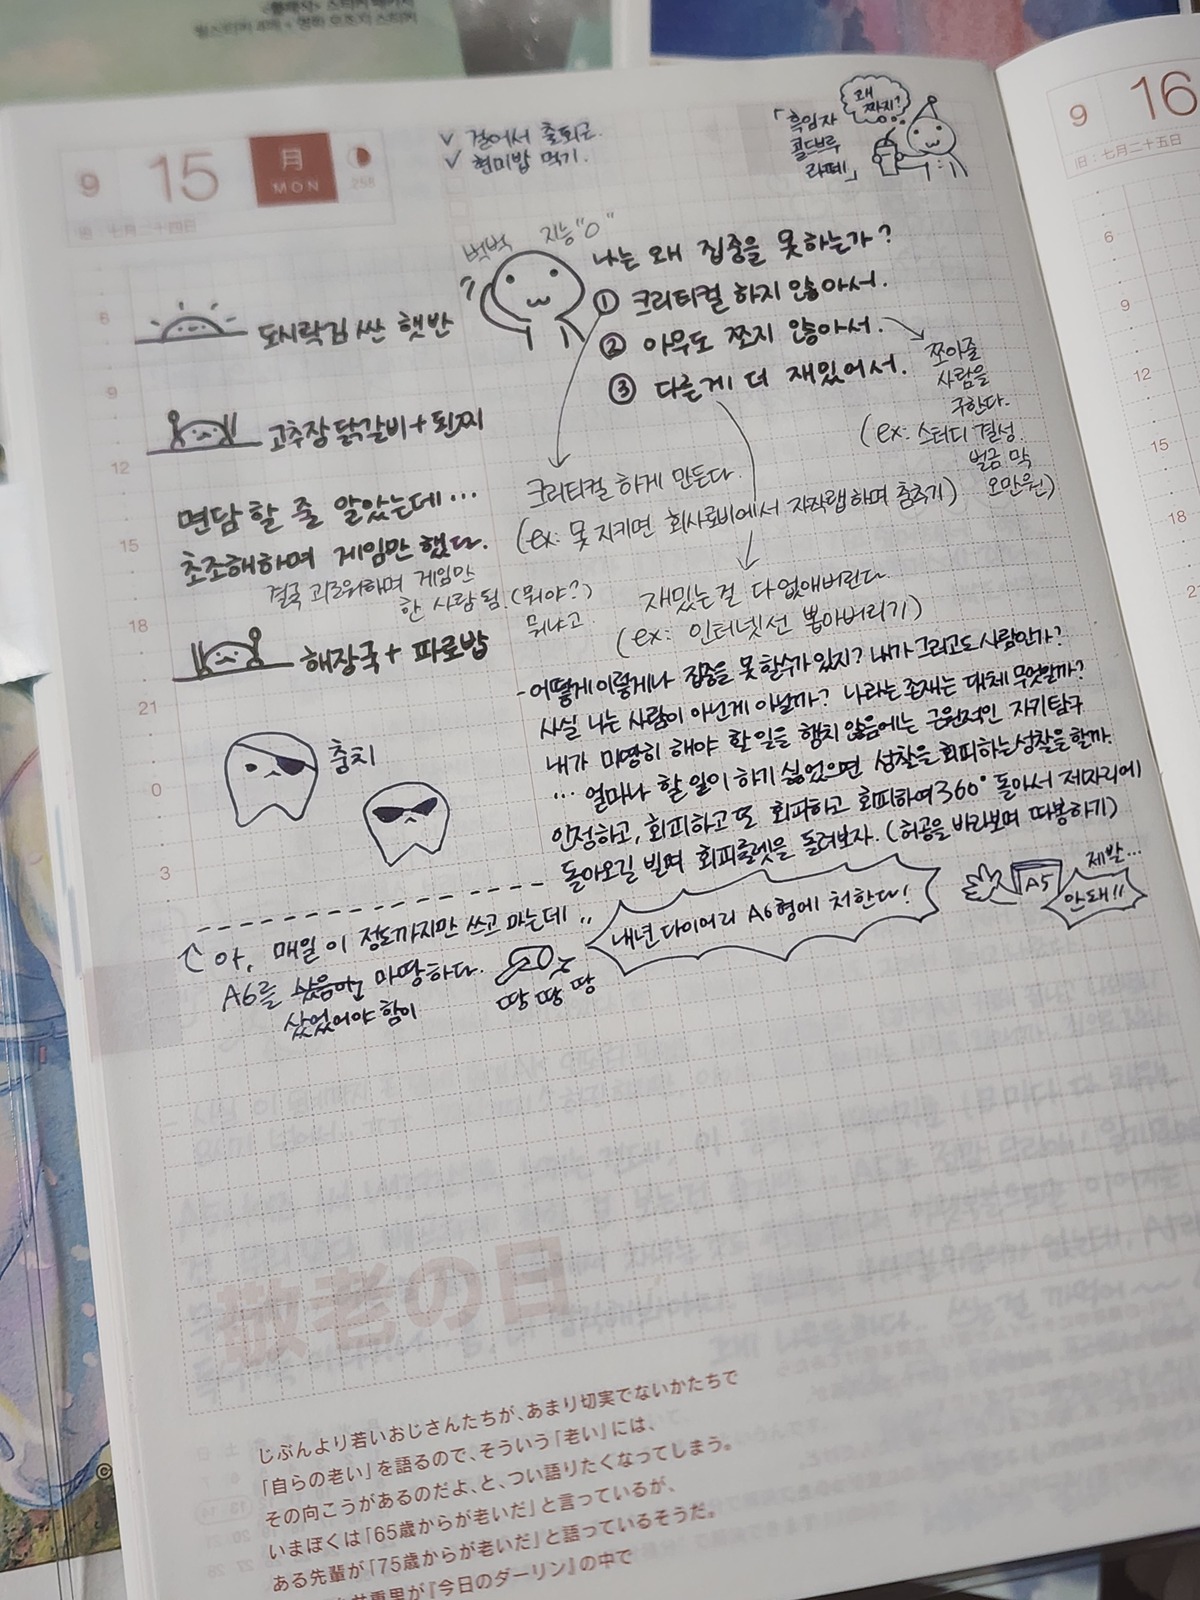 9 15 月 MON 258
旧:七月二十四日
✓ 걸어서 출퇴근.
✓ 현미밥 먹기.
「흑임자
콜드브루
라떼」
왜
짜지?
9 16
旧:七月二十五日
벅벅 지능"0"
나는 왜 집중을 못하는가?
① 크리티컬 하지 않아서.
② 아무도 쪼지 않아서.
③ 다른게 더 재밌어서.
쪼아줄
사람을
구한다.
(ex: 스터디 결성.
벌금 막
오만원)
크리티컬 하게 만든다.
(ex: 못 지키면 회사로비에서 자작랩하며 춤추기)
재밌는걸 다 없애버린다.
(ex: 인터넷선 뽑아버리기)
6
9
12
15
18
21
0
3
도시락김 싼 햇반
고추장닭갈비+된찌
면담 할 줄 알았는데...
초조해하며 게임만 했다.
결국 괴로워하며 게임만
한 사람 됨. (뭐야?)
뭐냐고
해장국+파로밥
충치
-어떻게 이렇게나 집중을 못할수가 있지? 내가 그러고도 사람인가?
사실 나는 사람이 아닌게 아닐까? 나라는 존재는 대체 무엇일까?
내가 마땅히 해야 할 일을 행치 않음에는 근원적인 자기탐구
... 얼마나 할 일이 하기 싫었으면 성찰을 회피하는 성찰을 할까.
인정하고, 회피하고 또 회피하고 회피하여 360° 돌아서 제자리에
돌아오길 빌며 회피룰렛을 돌려보자. (허공을 바라보며 따봉하기)
아, 매일 이 정도까지만 쓰고 마는데..
A6를 샀음이 마땅하다.
샀었어야 함이
땅 땅 땅
내년 다이어리 A6형에 처한다!
A5
제발...
안돼!!
6
9
12
15
18
敬老の日
じぶんより若いおじさんたちが、あまり切実でないかたちで
「自らの老い」を語るので、そういう「老い」には、
その向こうがあるのだよ、と、つい語りたくなってしまう。
いまぼくは「65歳からが老いだ」と言っているが、
ある先輩が「75歳からが老いだ」と語っているそうだ。
重里が『今日のダーリン』の中で